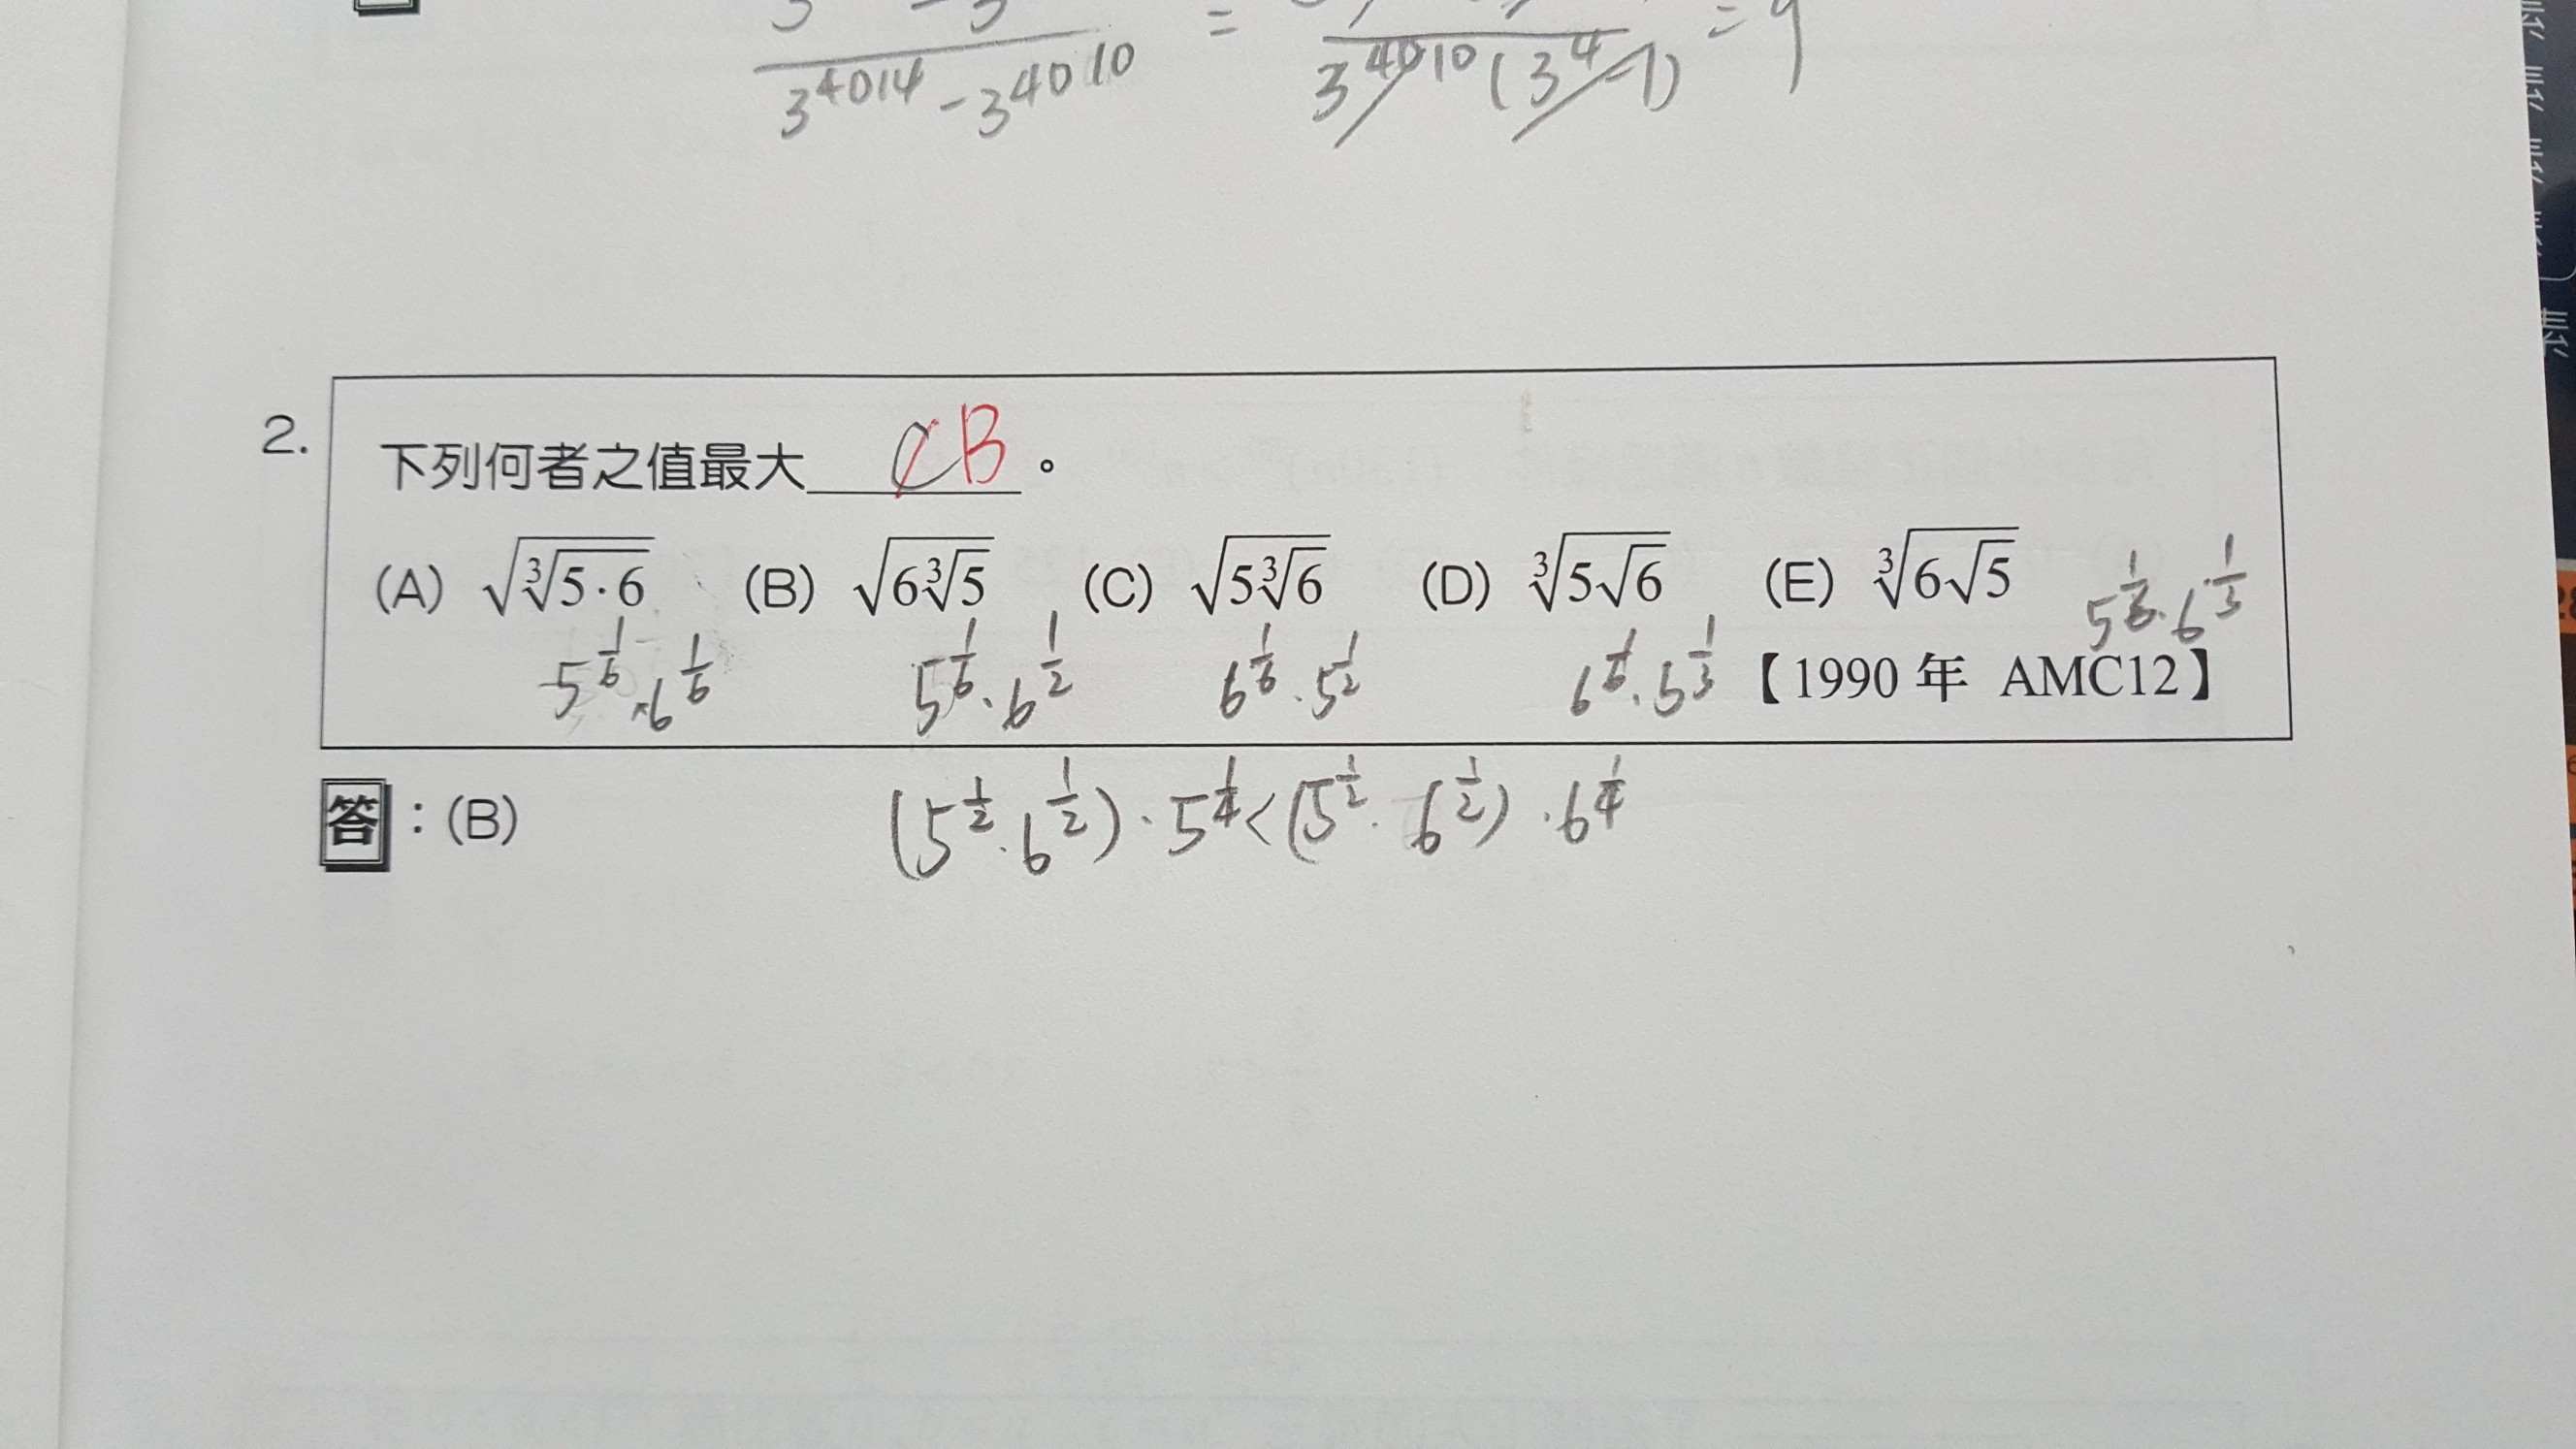 =
= 9
3^4014 - 3^4010
3^4010 (3^4 - 1)
2.
下列何者之值最大 C B 。
(A) √(∛(5·6)) (B) √(6∛5) (C) √(5∛6) (D) ∛(5√6) (E) ∛(6√5)
5^(1/6) × 6^(1/6) 5^(1/6) · 6^(1/2) 6^(1/6) · 5^(1/2) 6^(1/6) · 5^(1/3) 5^(1/6) · 6^(1/3)
【1990 年 AMC12】
答:(B)
(5^(1/2) · 6^(1/2)) · 5^(1/4) < (5^(1/2) · 6^(1/2)) · 6^(1/4)